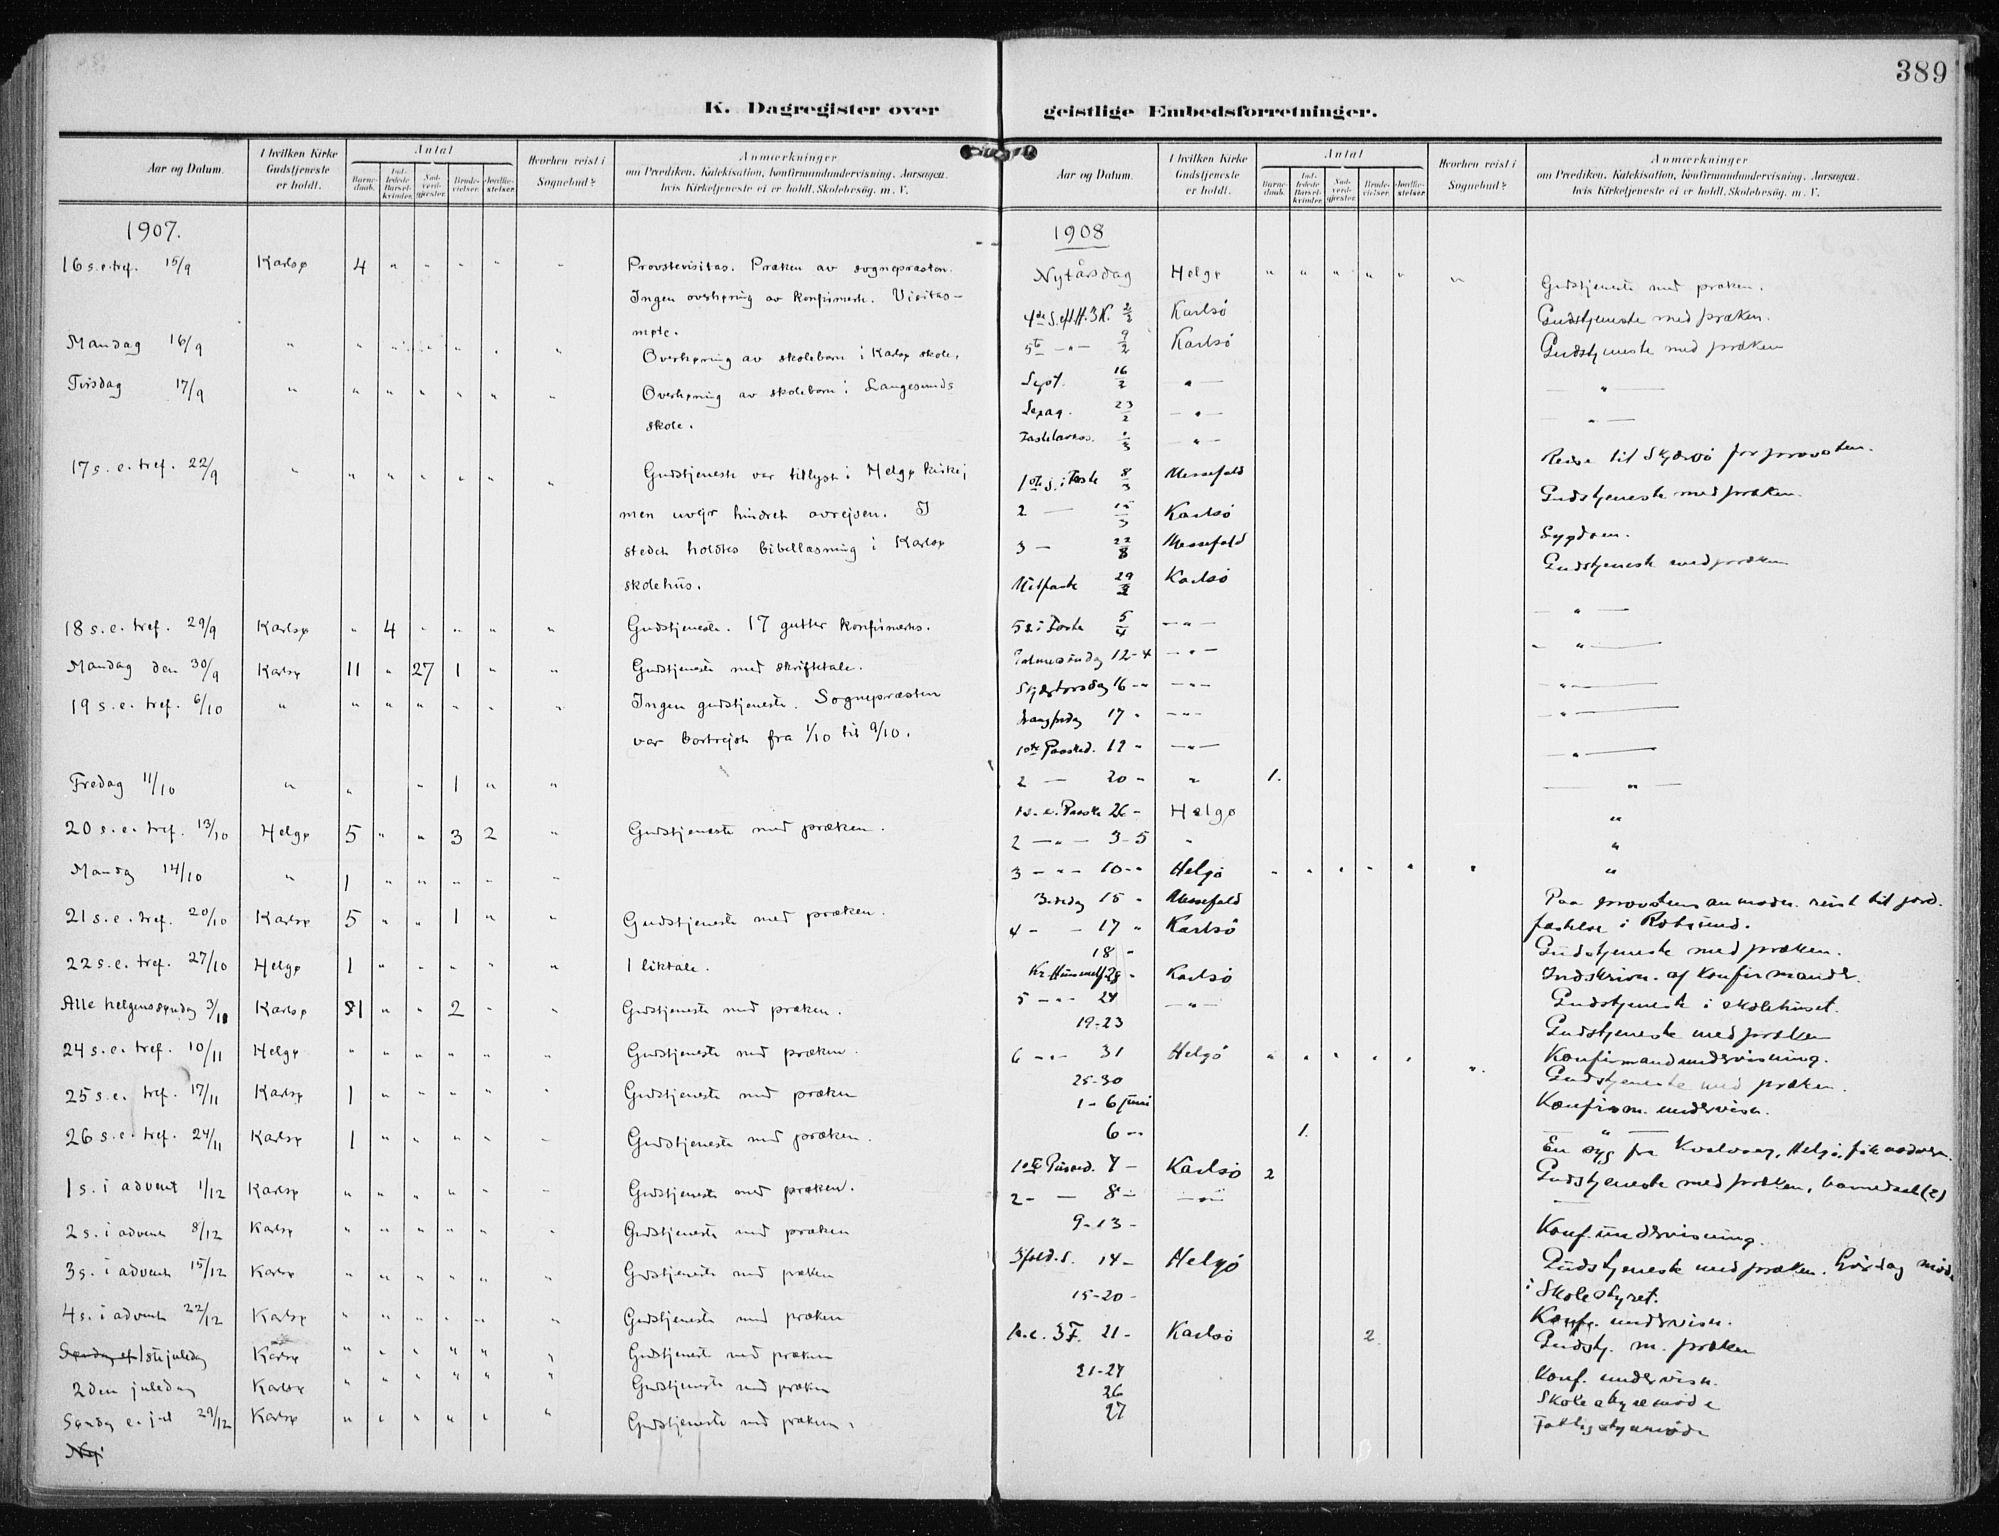 389
K. Dagregister over
Aar og Datum.
I hvilken Kirke Gudstjeneste er holdt.
Antal
Barnedaab.
Indledede Barselkvinder.
Nadverdgjester.
Brudevielser.
Jordfæstelser.
Hvorhen reist i Sognebud?
Anmærkninger
om Prædiken, Katekisation, Konfirmandundervisning, Aarsagen, hvis Kirketjeneste ei er holdt, Skolebesøg, m. V.
1907.
16 s.e.tref. 15/9 Karlsø 4 " " " " " Provstevisitas. Præken av sognepræsten.
Ingen overhøring av konfirmerte. Visitas-
møte.
Mandag 16/9 " " " " " " " Overhøring av skolebørn i Karlsø skole.
Tirsdag 17/9 " " " " " " " Overhøring av skolebørn i Langesunds
skole.
17 s.e. tref. 22/9 " " " " " " " Gudstjeneste var tillyst i Helgø kirke;
men uvejr hindret avrejsen. I
stedet holdtes bibellæsning i Karlsø
skolehus.
18 s.e. tref. 29/9 Karlsø " 4 " " " " Gudstjeneste. 17 gutter konfirmertes.
Mandag den 30/9 Karlsø 11 " 27 1 " " Gudstjeneste med skriftetale.
19 s.e. tref. 6/10 " " " " " " " Ingen gudstjeneste. Sognepræsten
var bortrejst fra 1/10 til 9/10.
Fredag 11/10 " " " 1 " "
20 s.e. tref. 13/10 Helgø 5 " " 3 2 " Gudstjeneste med præken.
Mandag 14/10 " 1 " " " "
21 s.e. tref. 20/10 Karlsø 5 " " 1 " " Gudstjeneste med præken.
22 s.e. tref. 27/10 Helgø 1 " " " " " 1 liktale.
Alle helgenssøndag 3/11 Karlsø 1 " " 2 " " Gudstjeneste med præken.
24 s.e. tref. 10/11 Helgø " " " " " " Gudstjeneste med præken.
25 s.e. tref. 17/11 Karlsø 1 " " " " " Gudstjeneste med præken
26 s.e. tref. 24/11 Karlsø 1 " " " " " Gudstjeneste med præken.
1 s. i advent 1/12 Karlsø " " " " " " Gudstjeneste med præken.
2 s. i advent 8/12 Karlsø " " " " " " Gudstjeneste med præken
3 s. i advent 15/12 Karlsø " " " " " " Gudstjeneste med præken
4 s. i advent 22/12 Karlsø " " " " " " Gudstjeneste med præken
1ste juledag Karlsø " " " " " " Gudstjeneste med præken
2den juledag Karlsø " " " " " Gudstjeneste med præken
Søndag e. jul 29/12 Karlsø " " " " " " Gudstjeneste med præken.
geistlige Embedsforretninger.
Aar og Datum.
I hvilken Kirke Gudstjeneste er holdt.
Antal
Barnedaab.
Indledede Barselkvinder.
Nadverdgjester.
Brudevielser.
Jordfæstelser.
Hvorhen reist i Sognebud?
Anmærkninger
om Prædiken, Katekisation, Konfirmandundervisning, Aarsagen, hvis Kirketjeneste ei er holdt, Skolebesøg, m. V.
1908
Nytårsdag Helgø " " " " " " Gudstjeneste med præken.
4de S. eft. H.3K. 2/2 Karlsö Gudstjeneste med præken.
5te — " — 9/2 Karlsö Gudstjeneste med præken
16/2 — " — — " —
23/2 — " — — " —
Fastelavnss. 1/3 — " — Reise til Skjærvö for provsten.
1ste S. i Faste 8/3 Messefald Gudstjeneste med præken.
2 — 15/3 Karlsö
3 — 22/3 Messefald Sygdom.
Midfaste 29/3 Karlsö Gudstjeneste med præken
5 S. i Faste 5/4 — " — — " —
Palmesöndag 12-4 — " — — " —
Skjærtorsdag 16 - " — " — — " —
Langfredag 17 " — " — — " —
1ste Paasked. 19 - — " — — " —
2 — 20 " " 1. — " —
1 s. e. Paaske 26 - Helgö "
2 — " — 3-5 " "
3 — " — 10 - " Helgö " " " " " " "
Bededag 15 " Messefald Paa provstens anmodn. reist til jord-
fæstelse i
4 - - 17 " Karlsö Gudstjeneste med præken.
18 " Indskrivn. af konfirmander.
Kr. Himmelf. 28 - Karlsö Gudstjeneste i skolehuset.
5 — " - 24 — " — Gudstjeneste med præken
19-23 Konfirmandundervisning.
6 — " — 31 Helgö " " " " " " Gudstjeneste med præken.
25-30 Konfirm. undervisn.
1 - 6 juni — " —
6 — " 1. En syg fra Kvalvaag, Helgö, fik
1ste Pinsed. 7 — Karlsö 2 Gudstjeneste med præken, barnedaab (2)
2 - — 8 — — " — —
9-13 - Konf. undervisning.
3fold. S. 14 — Helgö Gudstjeneste med præken. Lördag möde
i Skolestyret.
15-20 - Konf. undervisn.
1 s. e. 3F. 21 - Karlsö 2 Gudstj. m. præken
21-27 Konf. undervisn.
26 Skolestyremöde
27 Fattigstyremöde